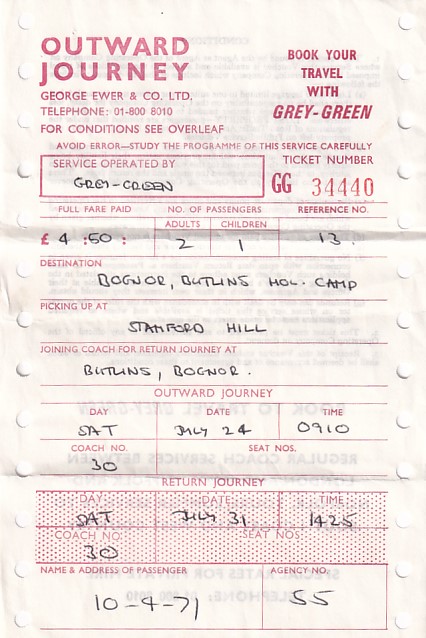 OUTWARD
JOURNEY
GEORGE EWER & CO. LTD.
TELEPHONE: 01-800 8010
FOR CONDITIONS SEE OVERLEAF
BOOK YOUR
TRAVEL
WITH
GREY-GREEN
AVOID ERROR—STUDY THE PROGRAMME OF THIS SERVICE CAREFULLY
SERVICE OPERATED BY
GREY-GREEN
TICKET NUMBER
GG 34440
FULL FARE PAID NO. OF PASSENGERS REFERENCE NO.
ADULTS CHILDREN
£ 4 : 50 : 2 1 13.
DESTINATION
BOGNOR, BUTLINS HOL. CAMP
PICKING UP AT
STAMFORD HILL
JOINING COACH FOR RETURN JOURNEY AT
BUTLINS, BOGNOR.
OUTWARD JOURNEY
DAY DATE TIME
SAT JULY 24 0910
COACH NO. SEAT NOS.
30
RETURN JOURNEY
DAY DATE TIME
SAT JULY 31 1425
COACH NO. SEAT NOS.
30
NAME & ADDRESS OF PASSENGER AGENCY NO.
10-4-71 55